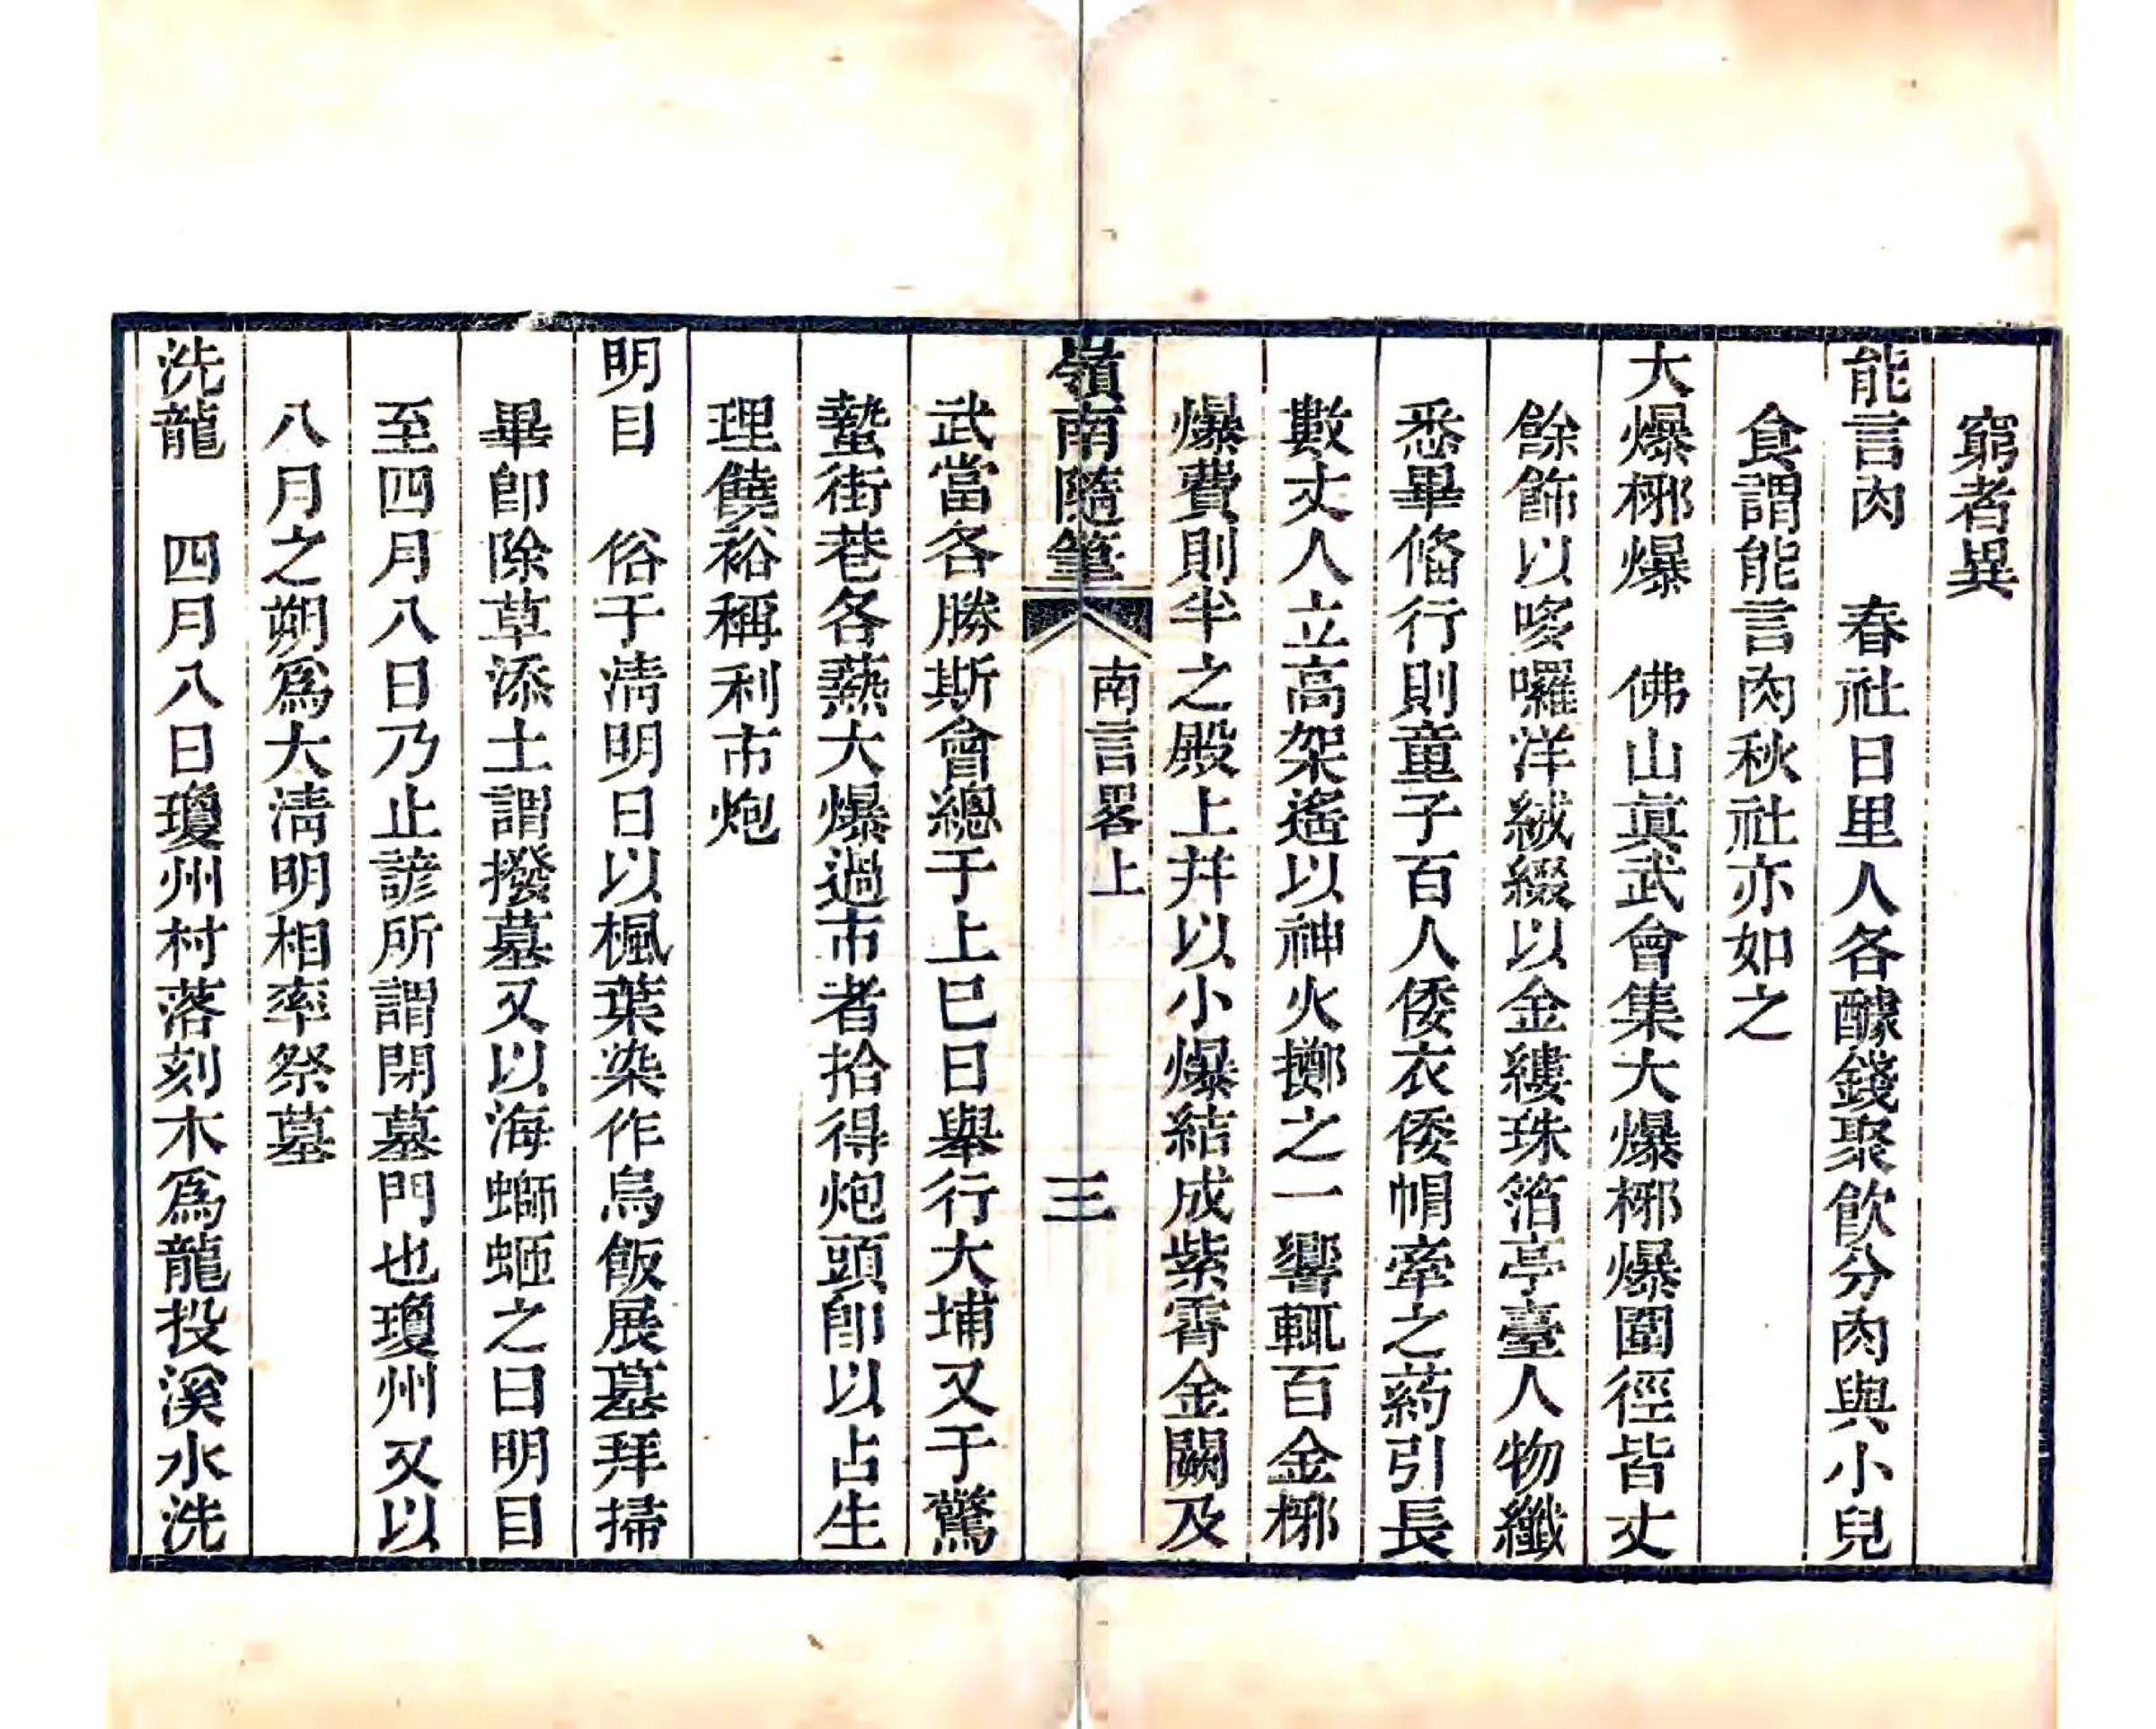 窮者異
能言肉　春社日里人各醵錢聚飲分肉與小兒
食謂能言肉秋社亦如之
大爆梛爆　佛山眞武會集大爆梛爆圍徑皆丈
餘飾以哆囉洋絨綴以金縷珠箔亭臺人物纖
悉畢俻行則童子百人倭衣倭帩牽之葯引長
數丈人立高架遙以神火擲之一響輒百金梛
爆費則半之殿上幷以小爆結成紫霄金闕及
嶺南隨筆　南言畧上　三
武當各勝斯會總于上巳日舉行大埔又于驚
蟄街巷各爇大爆過市者拾得炮頭卽以占生
理饒裕稱利市炮
明目　俗于淸明日以楓葉染作烏飯展墓拜掃
畢卽除草添土謂撥墓又以海螄蜔之曰明目
至四月八日乃止諺所謂閉墓門也瓊州又以
八月之朔爲大淸明相率祭墓
洗龍　四月八日瓊州村落刻木爲龍投溪水洗